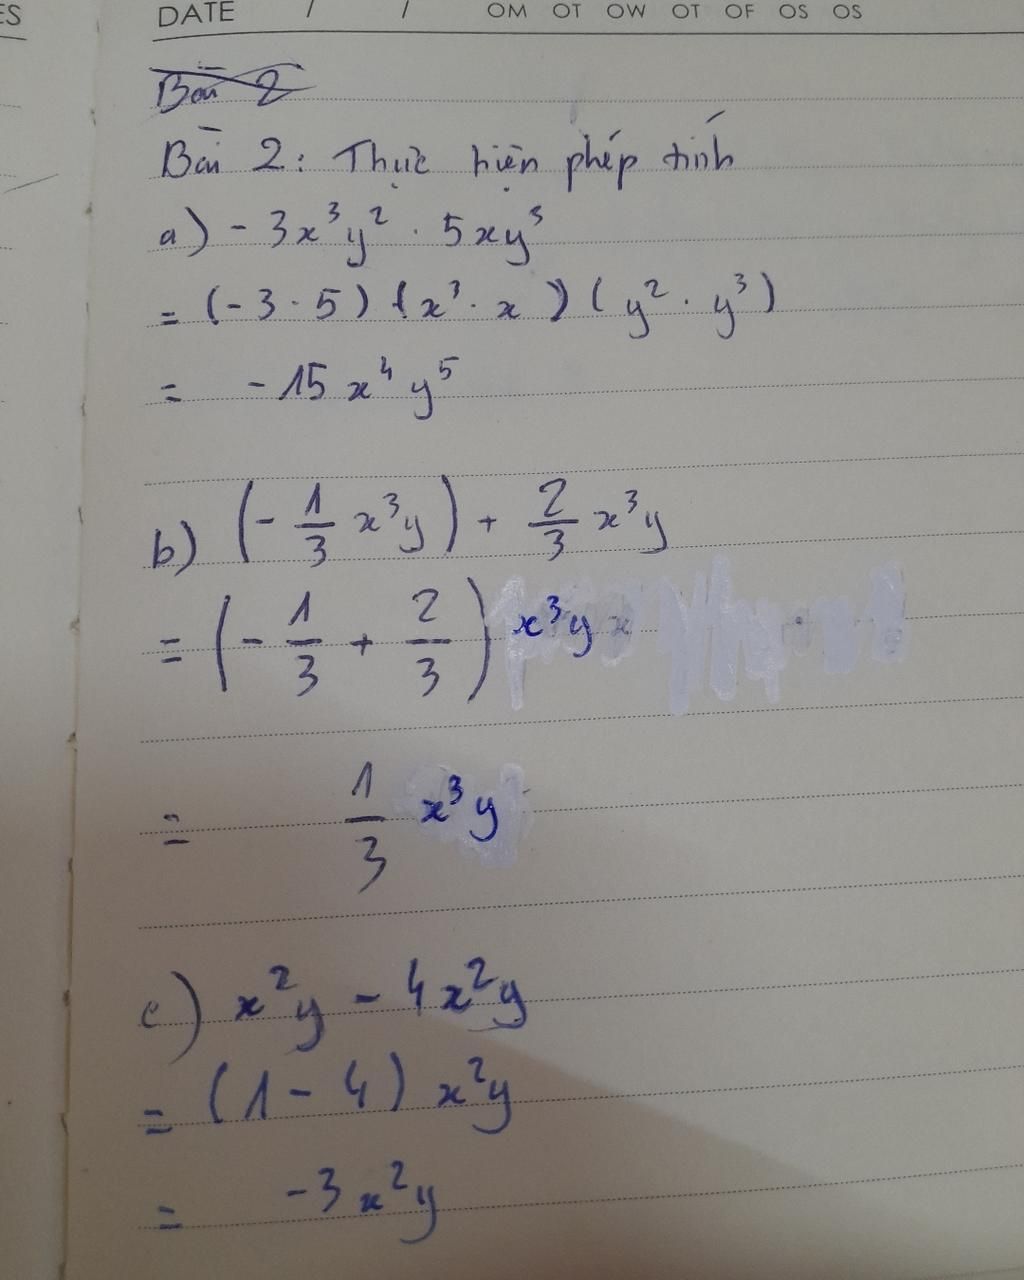 ES
DATE / / OM OT OW OT OF OS OS
Bài 2
Bài 2: Thực hiện phép tính
a) - 3x³y² . 5xy³
= (-3 . 5) (x³ . x) (y² . y³)
= -15 x⁴ y⁵
b) (- 1/3 x³y) + 2/3 x³y
= (- 1/3 + 2/3) x³y x
= 1/3 x³y
c) x²y - 4x²y
= (1 - 4) x²y
= -3x²y